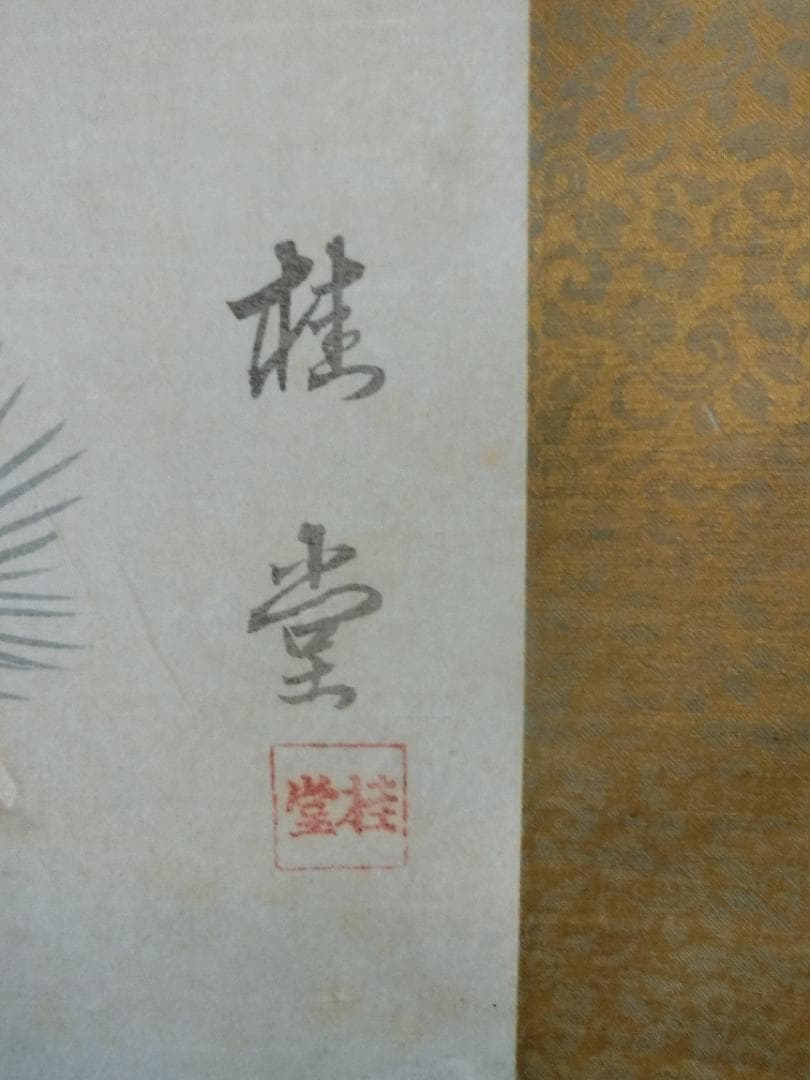 桂堂
桂堂